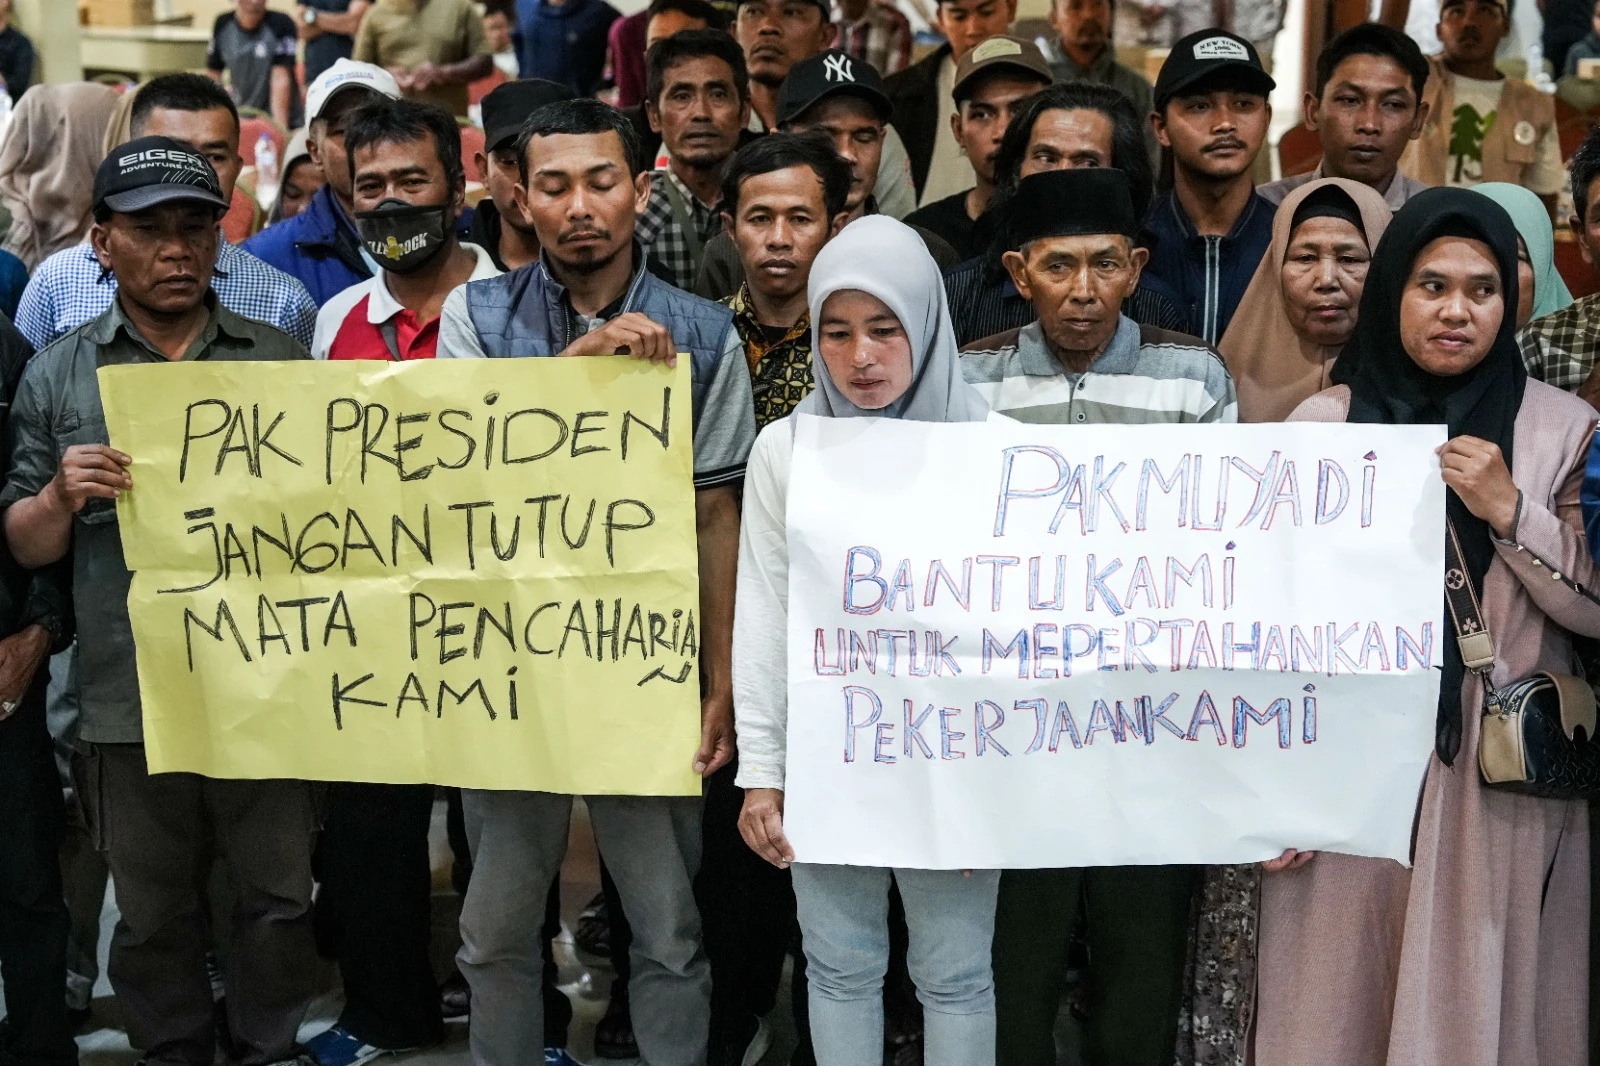 PAK PRESiDEN
JANGAN TUTUP
MATA PENCAHARiAN
KAMi
PAK MULYADi
BANTU KAMi
UNTUK MEPERTAHANKAN
PEKERJAAN KAMi
EIGER
ADVENTURE
NY
NEW YORK